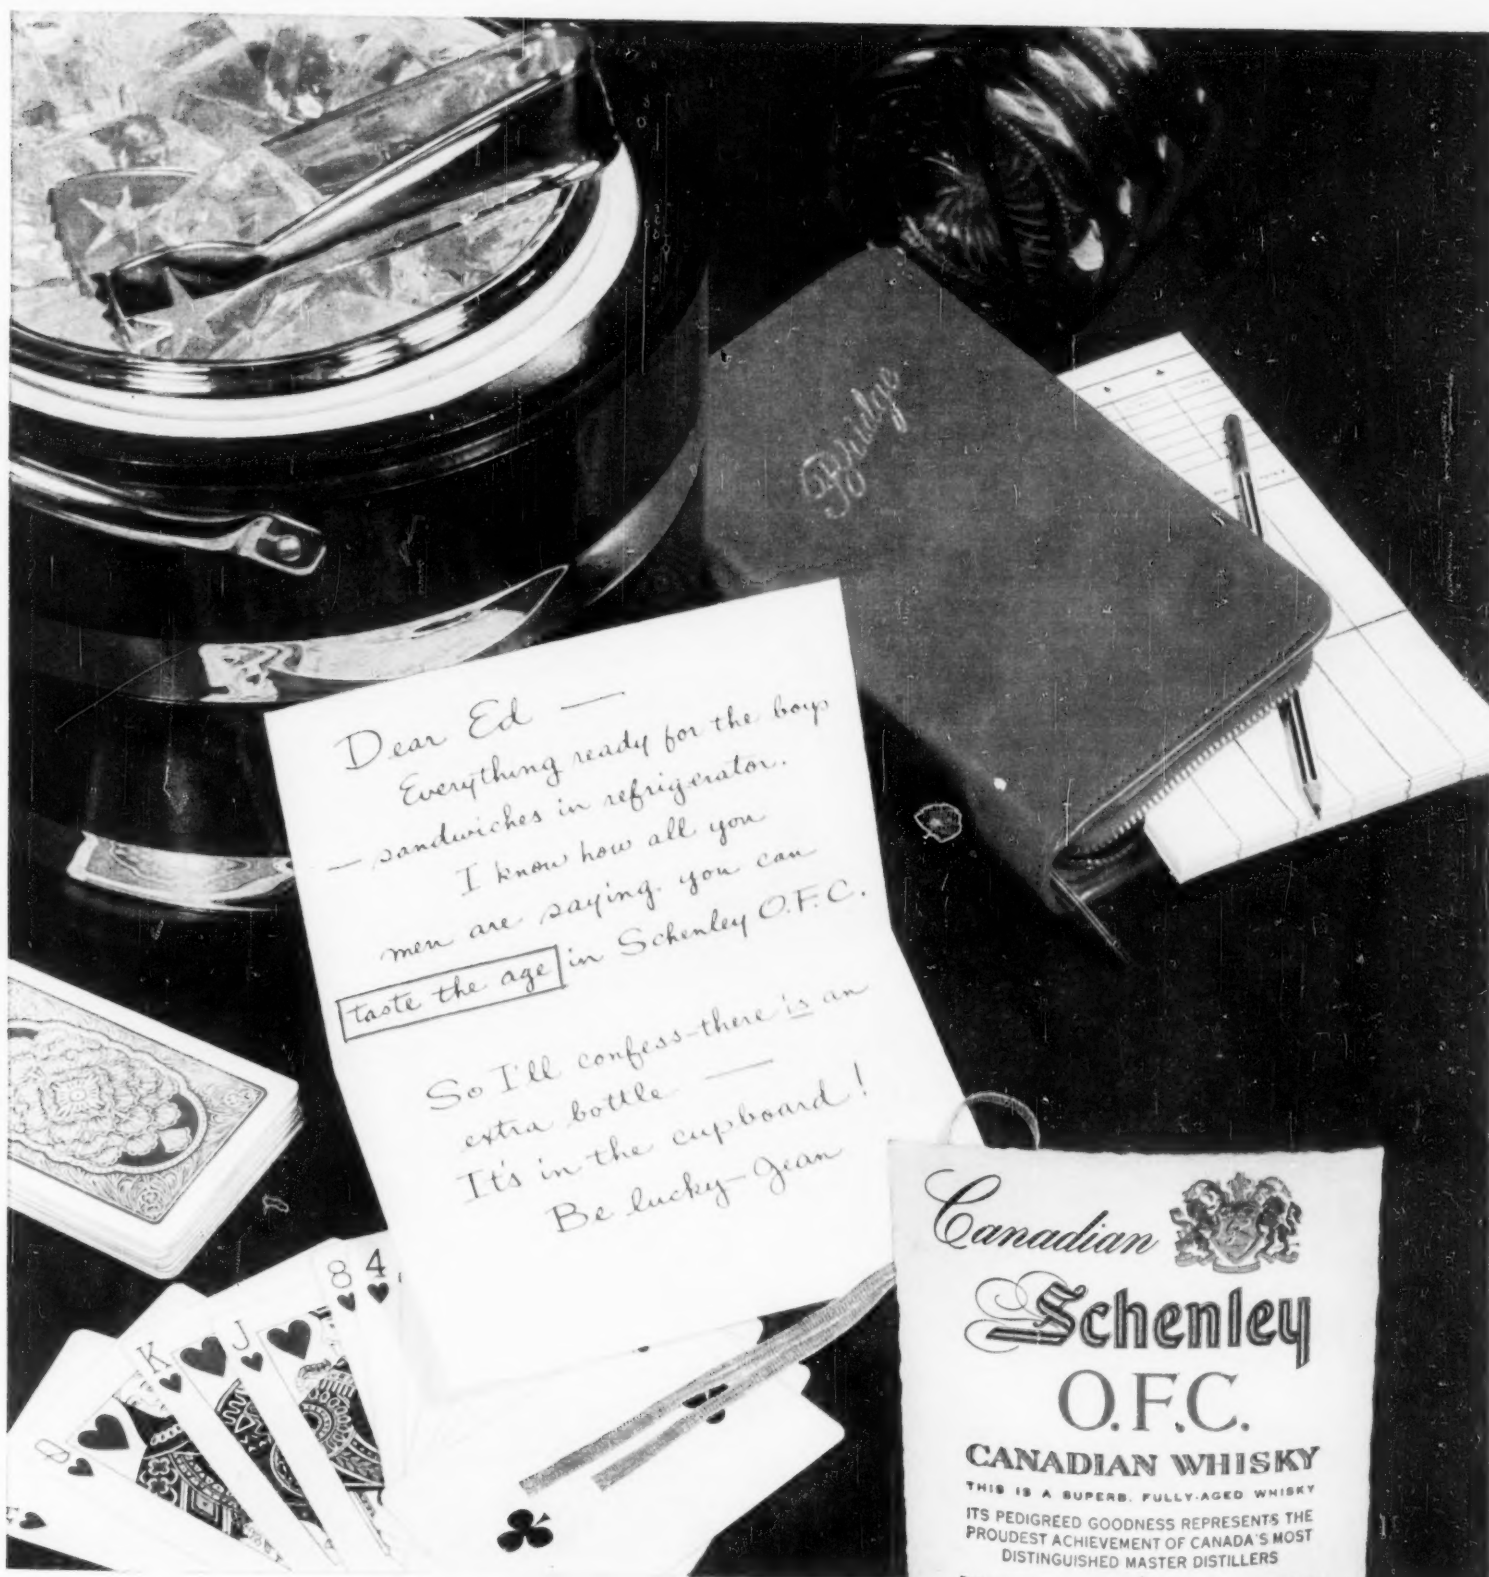 Bridge
Dear Ed —
Everything ready for the boys
— sandwiches in refrigerator.
I know how all you
men are saying you can
taste the age in Schenley O.F.C.
So I'll confess—there is an
extra bottle —
It's in the cupboard!
Be lucky—Jean
8 4
K J
Q
Canadian
Schenley
O.F.C.
CANADIAN WHISKY
THIS IS A SUPERB, FULLY-AGED WHISKY
ITS PEDIGREED GOODNESS REPRESENTS THE
PROUDEST ACHIEVEMENT OF CANADA'S MOST
DISTINGUISHED MASTER DISTILLERS